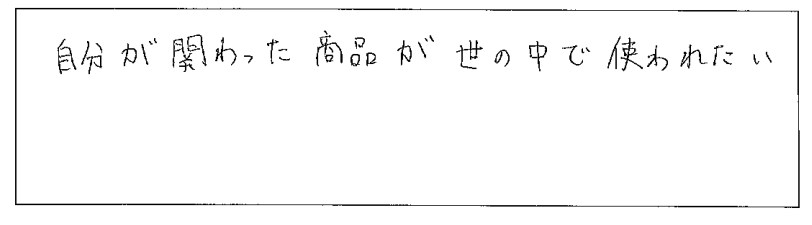 自分が関わった商品が世の中で使われたい